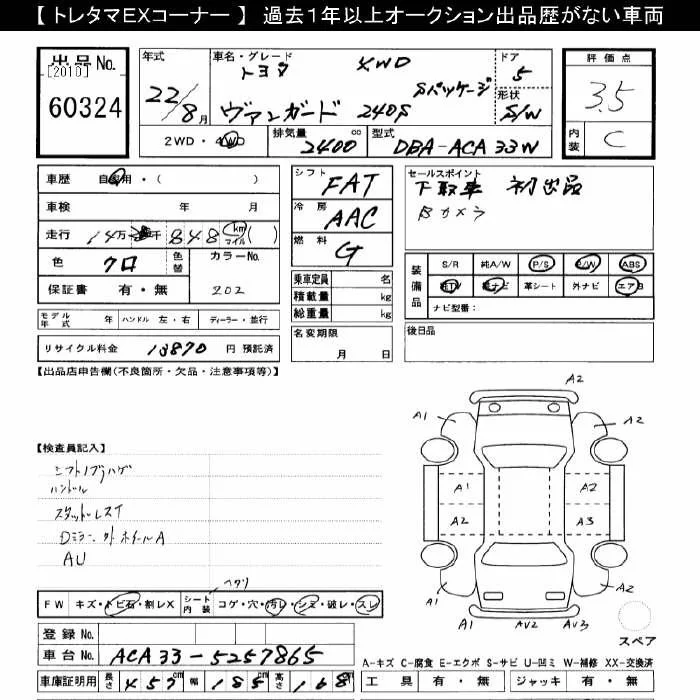 【トレタマEXコーナー】 過去1年以上オークション出品歴がない車両
出品No. [2010]
60324
年式 22/8月
車名・グレード トヨタ 4WD
ヴァンガード 240S Sパッケージ
ドア 5
形状 S/W
評価点 3.5
内装 C
2WD・4WD 排気量 2400 cc 型式 DBA-ACA33W
車歴 自家用・( )
車検 年 月
走行 14万 千 848 km マイル ( )
色 クロ 色替 カラーNo. 202
保証書 有・無
シフト FAT
冷房 AAC
燃料 G
乗車定員 名
積載量 kg
総重量 kg
セールスポイント
下取車 初出品
Bカメラ
装備品 S/R 純A/W P/S P/W ABS
純TV 純ナビ 革シート 外ナビ エアB
ナビ型番:
モデル年式 年 ハンドル 左・右 ディーラー・並行
リサイクル料金 13870 円 預託済
名変期限 月 日
後日品
【出品店申告欄(不良箇所・欠品・注意事項等)】
【検査員記入】
シフトノブハゲ
ハンドル
スタッドレスT
Dミラー、外ホイールA
AU
A2
A1 A2
A1 A2
A2 A3
A1 A1 AV2 AV3 A2
スペア
ヘタリ
FW キズ・トビ石・割レX シート内装 コゲ・穴・汚レ・シミ・破レ・スレ
登録No.
車台No. ACA33-5257865
車庫証明用 長さ 457cm 幅 185cm 高さ 168
A-キズ C-腐食 E-エクボ S-サビ U-凹ミ W-補修 XX-交換済
工具 有・無 ジャッキ 有・無